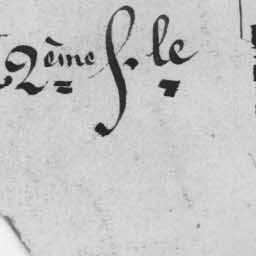 2ème f.le